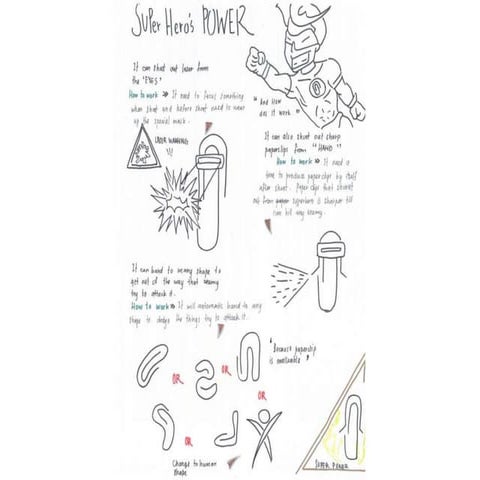 SUPER HERO'S POWER
It can shoot out laser from
the "EYES."
How to work >> It need to focus something
when shoot and before shoot need to wear
up the special mask.
LASER WARNING
!!!
" And How
does it work "
It can also shoot out sharp
paperclips from "HAND"
How to work >> It need a
time to produce paperclips by itself
after shoot. Paperclips that shoot
out from superhero is sharper till
can kill any enemy.
It can bend to any shape to
get out of the way that enemy
try to attack it.
How to work >> It will automatic bend to any
shape to dodge the things try to attack it.
OR
OR
OR
OR
"Because paperclip
is malleable"
Change to human
shape
SUPER POWER